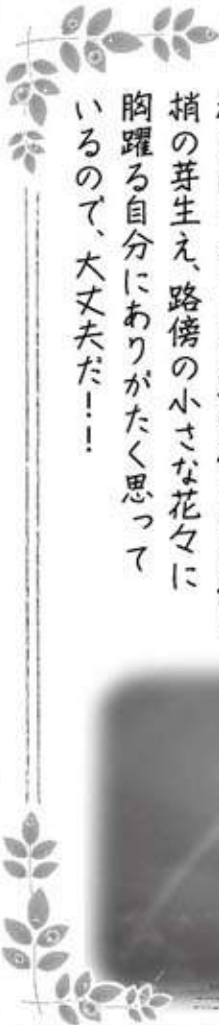 梢の芽生え、路傍の小さな花々に
胸躍る自分にありがたく思って
いるので、大丈夫だ！！